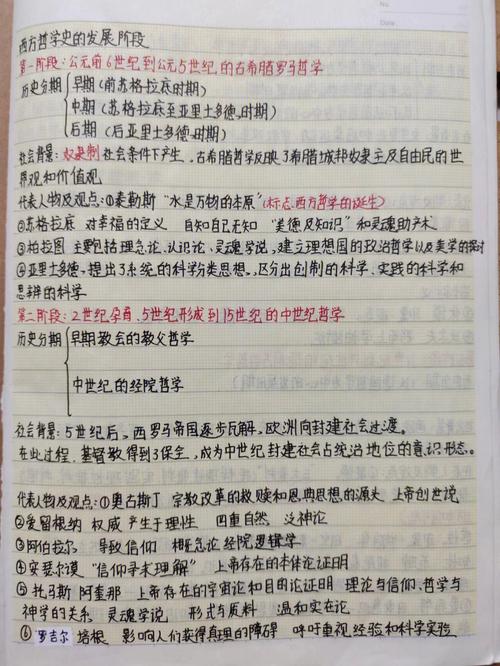 No.
Date
西方哲学史的发展阶段
第一阶段:公元前6世纪到公元5世纪的古希腊罗马哲学
历史分期 早期(前苏格拉底时期)
中期(苏格拉底至亚里士多德时期)
后期(后亚里士多德时期)
社会背景:奴隶制社会条件下产生,古希腊哲学反映了希腊城邦奴隶主及自由民的世
界观和价值观
代表人物及观点:①泰勒斯“水是万物的本原”(标志西方哲学的诞生)
②苏格拉底 对幸福的定义 自知自己无知 “美德及知识”和灵魂助产术
③柏拉图 主要包括理念论、认识论、灵魂学说,建立理想国的政治哲学以及美学的探讨
④亚里士多德,提出了系统的科学分类思想,区分出创制的科学、实践的科学和
思辨的科学
第二阶段:2世纪孕育,5世纪形成到15世纪的中世纪哲学
历史分期 早期教会的教父哲学
中世纪的经院哲学
社会背景:5世纪后,西罗马帝国逐步瓦解,欧洲向封建社会过渡。
在此过程,基督教得到了保全,成为中世纪封建社会占统治地位的意识形态。
代表人物及观点:①奥古斯丁 宗教改革的救赎和恩典思想的源头 上帝创世说
②爱留根纳 权威产生于理性 四重自然 泛神论
③阿伯拉尔 导致信仰 概念论 经院逻辑学
④安瑟尔谟“信仰寻求理解” 上帝存在的本体论证明
⑤托马斯 阿奎那 上帝存在的宇宙论和目的论证明 理论与信仰、哲学与
神学的关系 灵魂学说 形式与质料 温和实在论
⑥罗吉尔 培根 影响人们获得真理的障碍 呼吁重视经验和科学实验